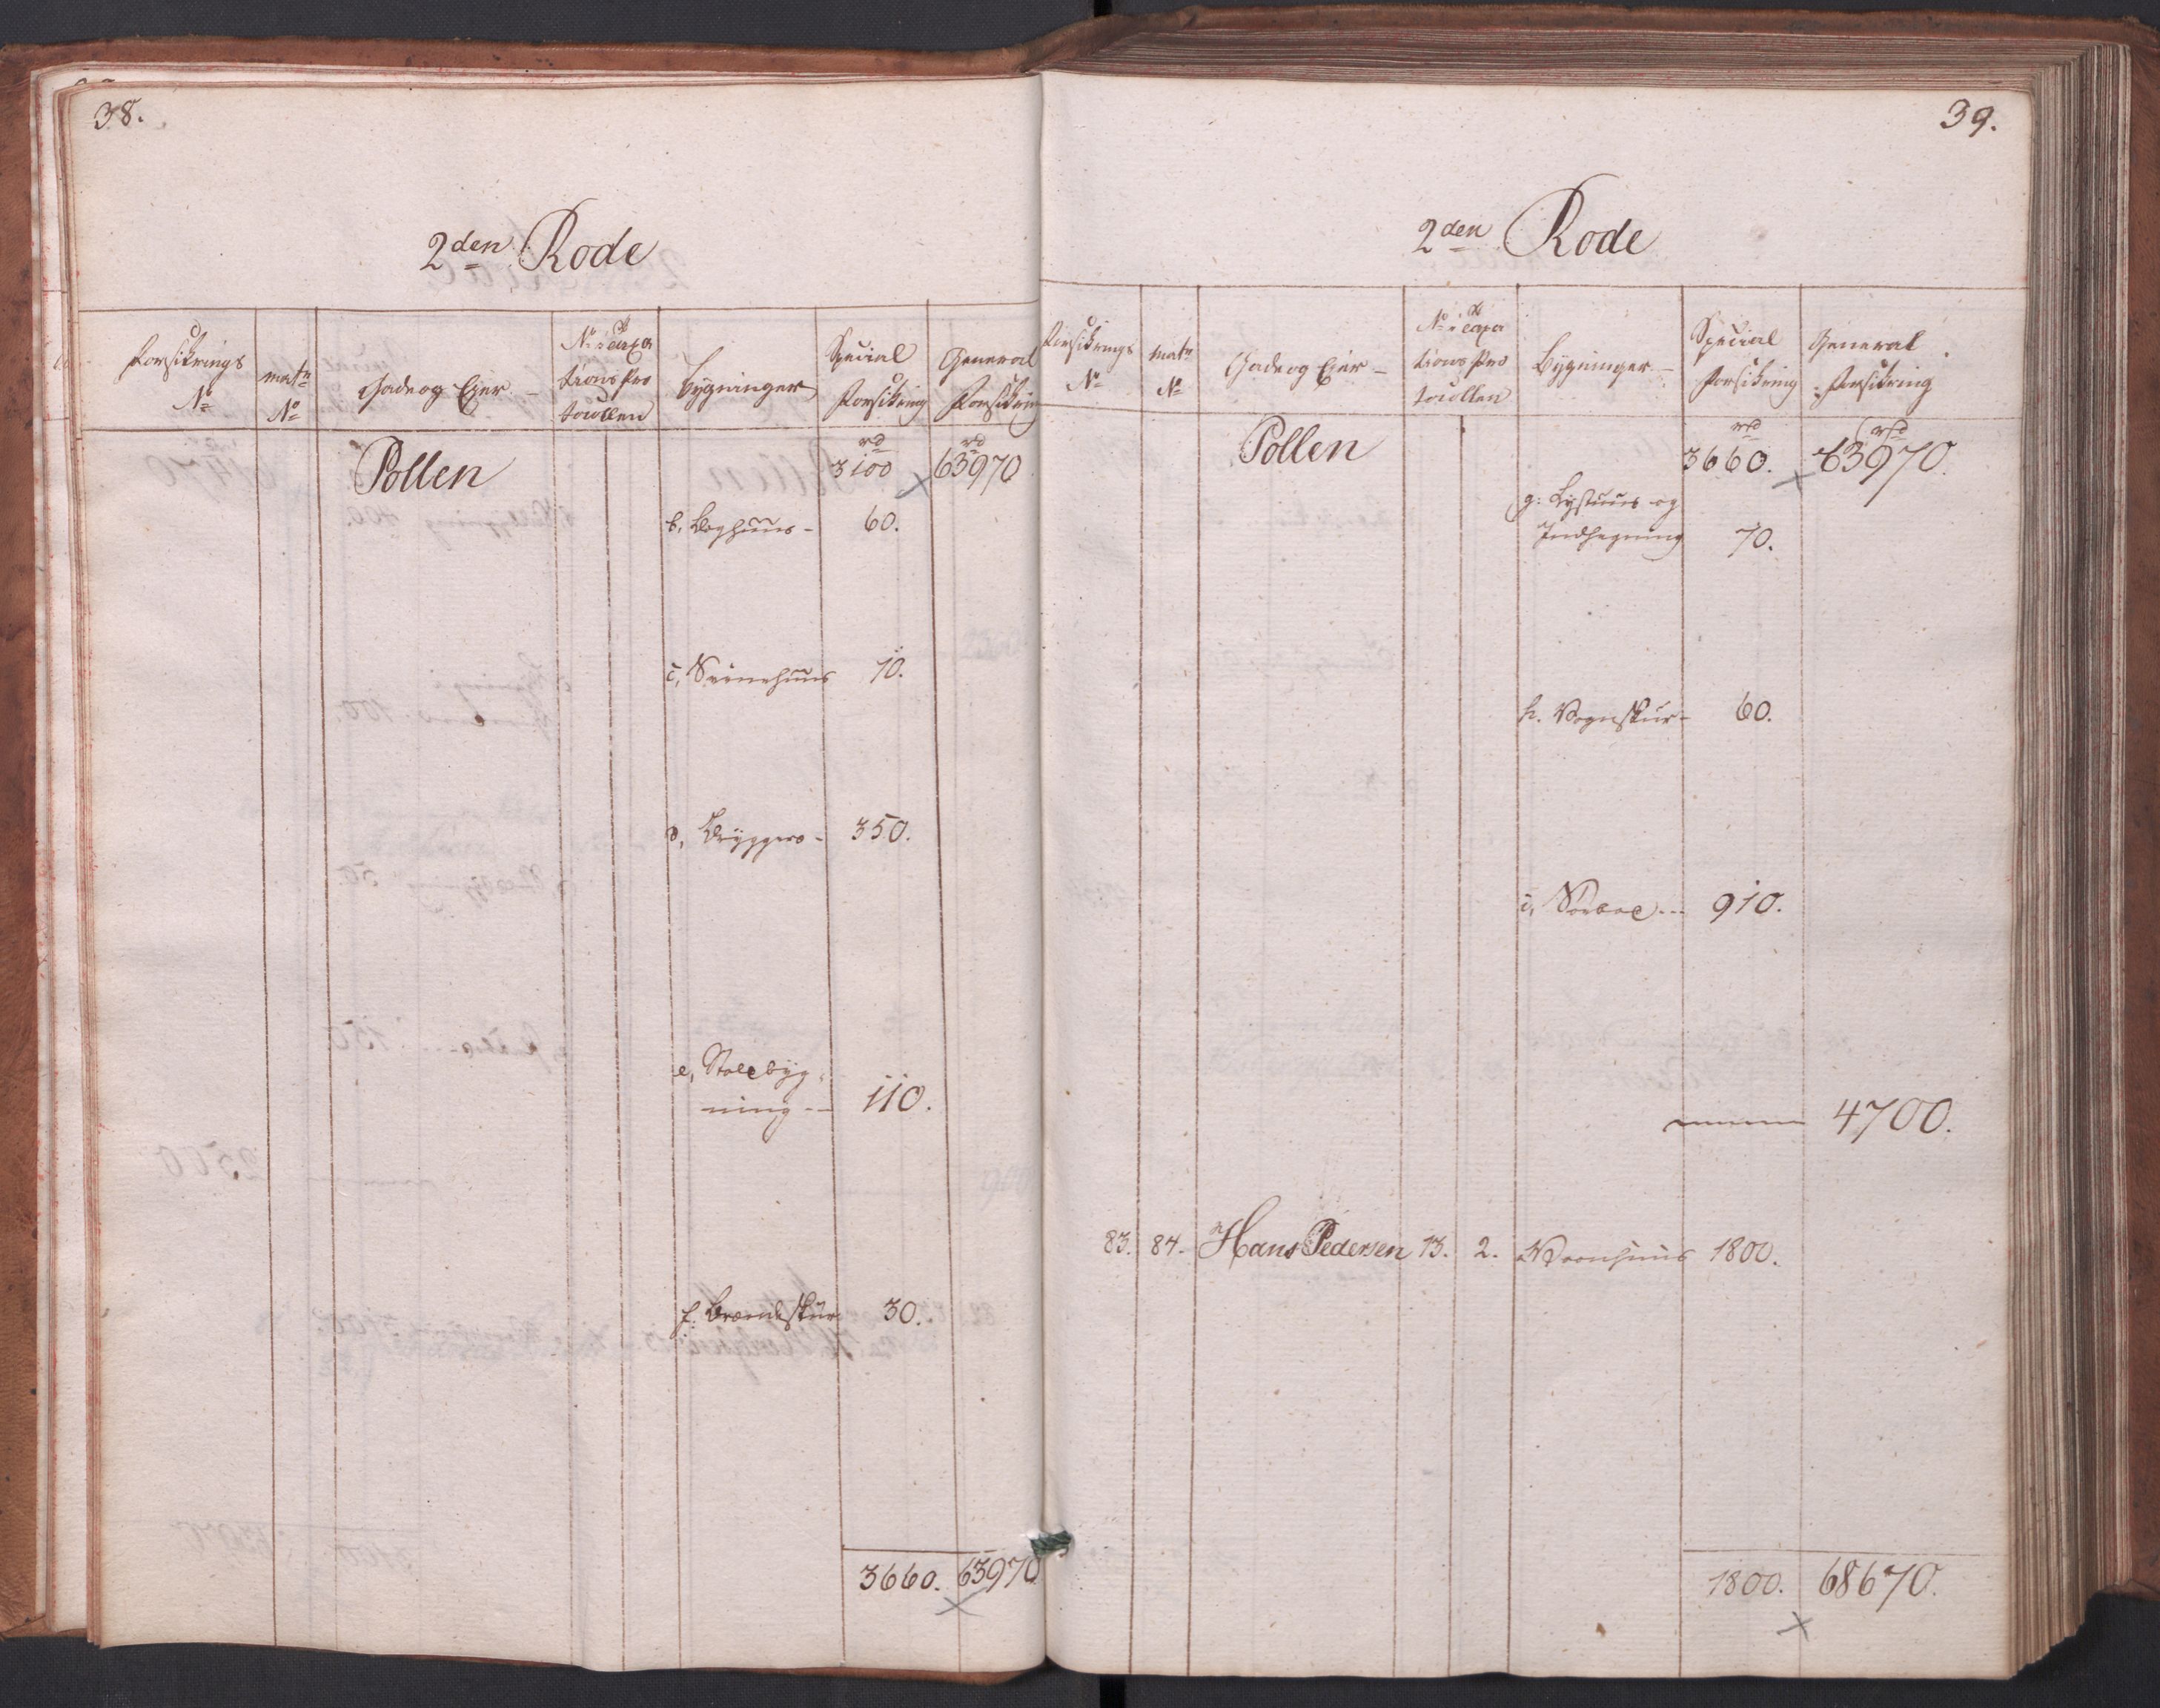 38.
2den Rode
Forsikrings No
matr No
Gade og Ejer
No i Taxa
tions Pro
tocollen
Bygninger
Special Forsikring
General Forsikring
Pollen
rd 3100
rd 63970
b, Bryghuus - 60.
c, Svinehuus 10.
d, Bryggers - 350.
e, Staldbyg-
ning - 110.
f. Brændeskur 30.
3660. 63970
39.
2den Rode
Forsikrings No
matr No
Gade og Ejer
No i Taxa
tions Pro
tocollen
Bygninger
Special Forsikring
General Forsikring
Pollen
rd 3660.
rd 63970.
g. Lysthuus og
Indhegning 70.
h. Vognskur - 60.
i, 910.
4700.
83. 84. Hans Pedersen 13. 2. Vaanhuus 1800.
1800. 68670.